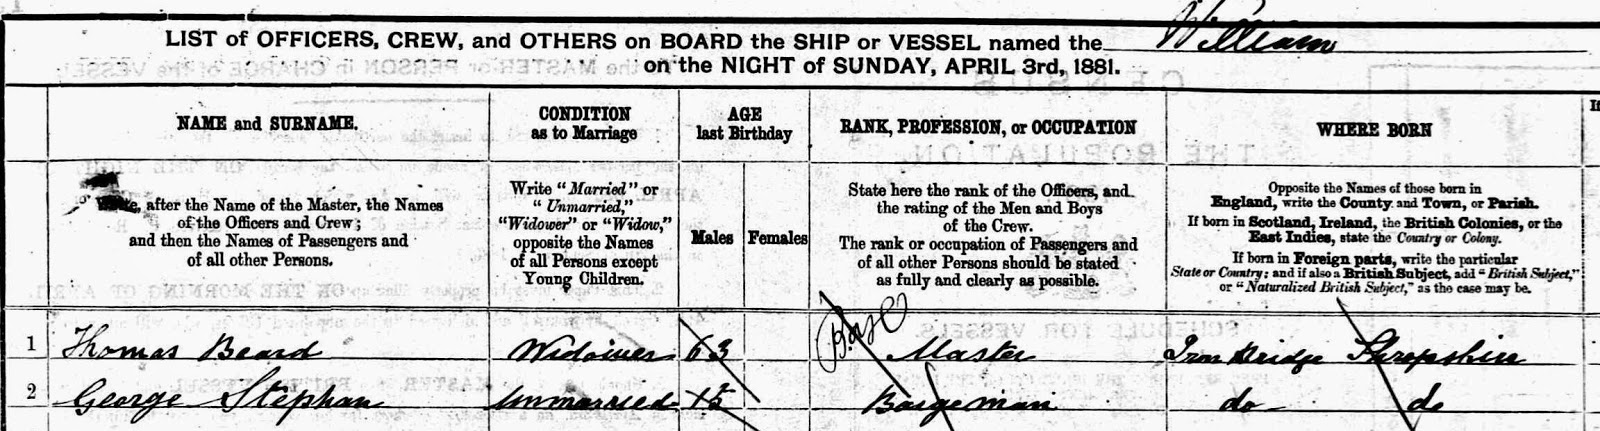 William
LIST of OFFICERS, CREW, and OTHERS on BOARD the SHIP or VESSEL named the
on the NIGHT of SUNDAY, APRIL 3rd, 1881.
NAME and SURNAME.
CONDITION
as to Marriage
AGE
last Birthday
RANK, PROFESSION, or OCCUPATION
WHERE BORN
If
after the Name of the Master, the Names
of the Officers and Crew;
and then the Names of Passengers and
of all other Persons.
Write "Married" or
"Unmarried,"
"Widower" or "Widow,"
opposite the Names
of all Persons except
Young Children.
Males
Females
State here the rank of the Officers, and
the rating of the Men and Boys
of the Crew.
The rank or occupation of Passengers and
of all other Persons should be stated
as fully and clearly as possible.
Opposite the Names of those born in
England, write the County and Town, or Parish.
If born in Scotland, Ireland, the British Colonies, or the
East Indies, state the Country or Colony.
If born in Foreign parts, write the particular
State or Country; and if also a British Subject, add "British Subject,"
or "Naturalized British Subject," as the case may be.
1 Thomas Beard Widower 63 Master Iron Bridge Shropshire
2 George Stephan Unmarried 15 Bargeman do do